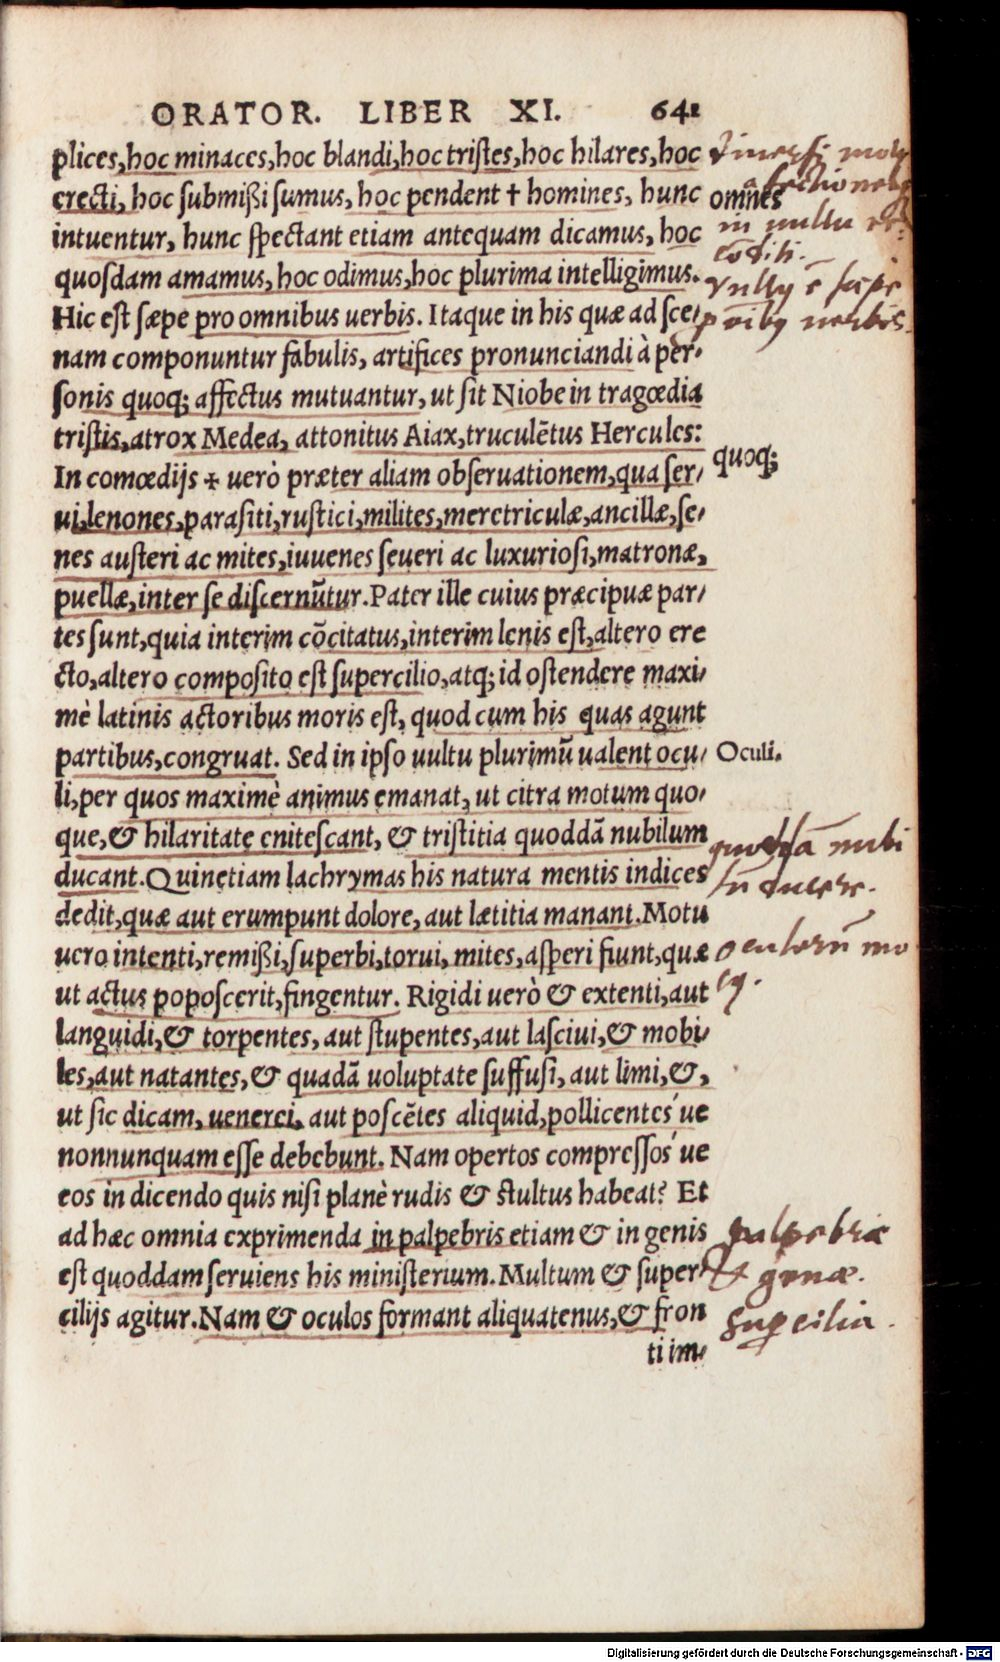 ORATOR. LIBER XI. 641
plices, hoc minaces, hoc blandi, hoc tristes, hoc hilares, hoc
erecti, hoc submißi sumus, hoc pendent † homines, hunc
omnes
intuentur, hunc spectant etiam antequam dicamus, hoc
quosdam amamus, hoc odimus, hoc plurima intelligimus.
Hic est sæpe pro omnibus uerbis. Itaque in his quæ ad sce/
nam componuntur fabulis, artifices pronunciandi à per/
sonis quoq; affectus mutuantur, ut sit Niobe in tragœdia
tristis, atrox Medea, attonitus Aiax, truculẽtus Hercules:
In comœdijs ✢ uerò præter aliam obseruationem, qua ser/
quoq;
ui, lenones, parasiti, rustici, milites, meretriculæ, ancillæ, se/
nes austeri ac mites, iuuenes seueri ac luxuriosi, matronæ,
puellæ, inter se discernũtur. Pater ille cuius præcipuæ par/
tes sunt, quia interim cõcitatus, interim lenis est, altero ere
cto, altero composito est supercilio, atq; id ostendere maxi/
mè latinis actoribus moris est, quod cum his quas agunt
partibus, congruat. Sed in ipso uultu plurimũ ualent ocu/
Oculi.
li, per quos maximè animus emanat, ut citra motum quo/
que, & hilaritate enitescant, & tristitia quoddã nubilum
ducant. Quinetiam lachrymas his natura mentis indices
dedit, quæ aut erumpunt dolore, aut lætitia manant. Motu
uero intenti, remißi, superbi, torui, mites, asperi fiunt, quæ
ut actus poposcerit, fingentur. Rigidi uerò & extenti, aut
languidi, & torpentes, aut stupentes, aut lasciui, & mobi/
les, aut natantes, & quadã uoluptate suffusi, aut limi, &,
ut sic dicam, uenerei, aut poscẽtes aliquid, pollicentes´ue
nonnunquam esse debebunt. Nam opertos compressos´ue
eos in dicendo quis nisi planè rudis & stultus habeat? Et
ad hæc omnia exprimenda in palpebris etiam & in genis
est quoddam seruiens his ministerium. Multum & super/
cilijs agitur. Nam & oculos formant aliquatenus, & fron
ti im/
in uultu
uultꝰ ẽ sæpe
uerbis.
quoddã nubi
lũ ducere.
oculorũ mo
tꝰ.
palpebræ
& genæ.
Suꝑcilia.
Digitalisierung gefördert durch die Deutsche Forschungsgemeinschaft - DFG